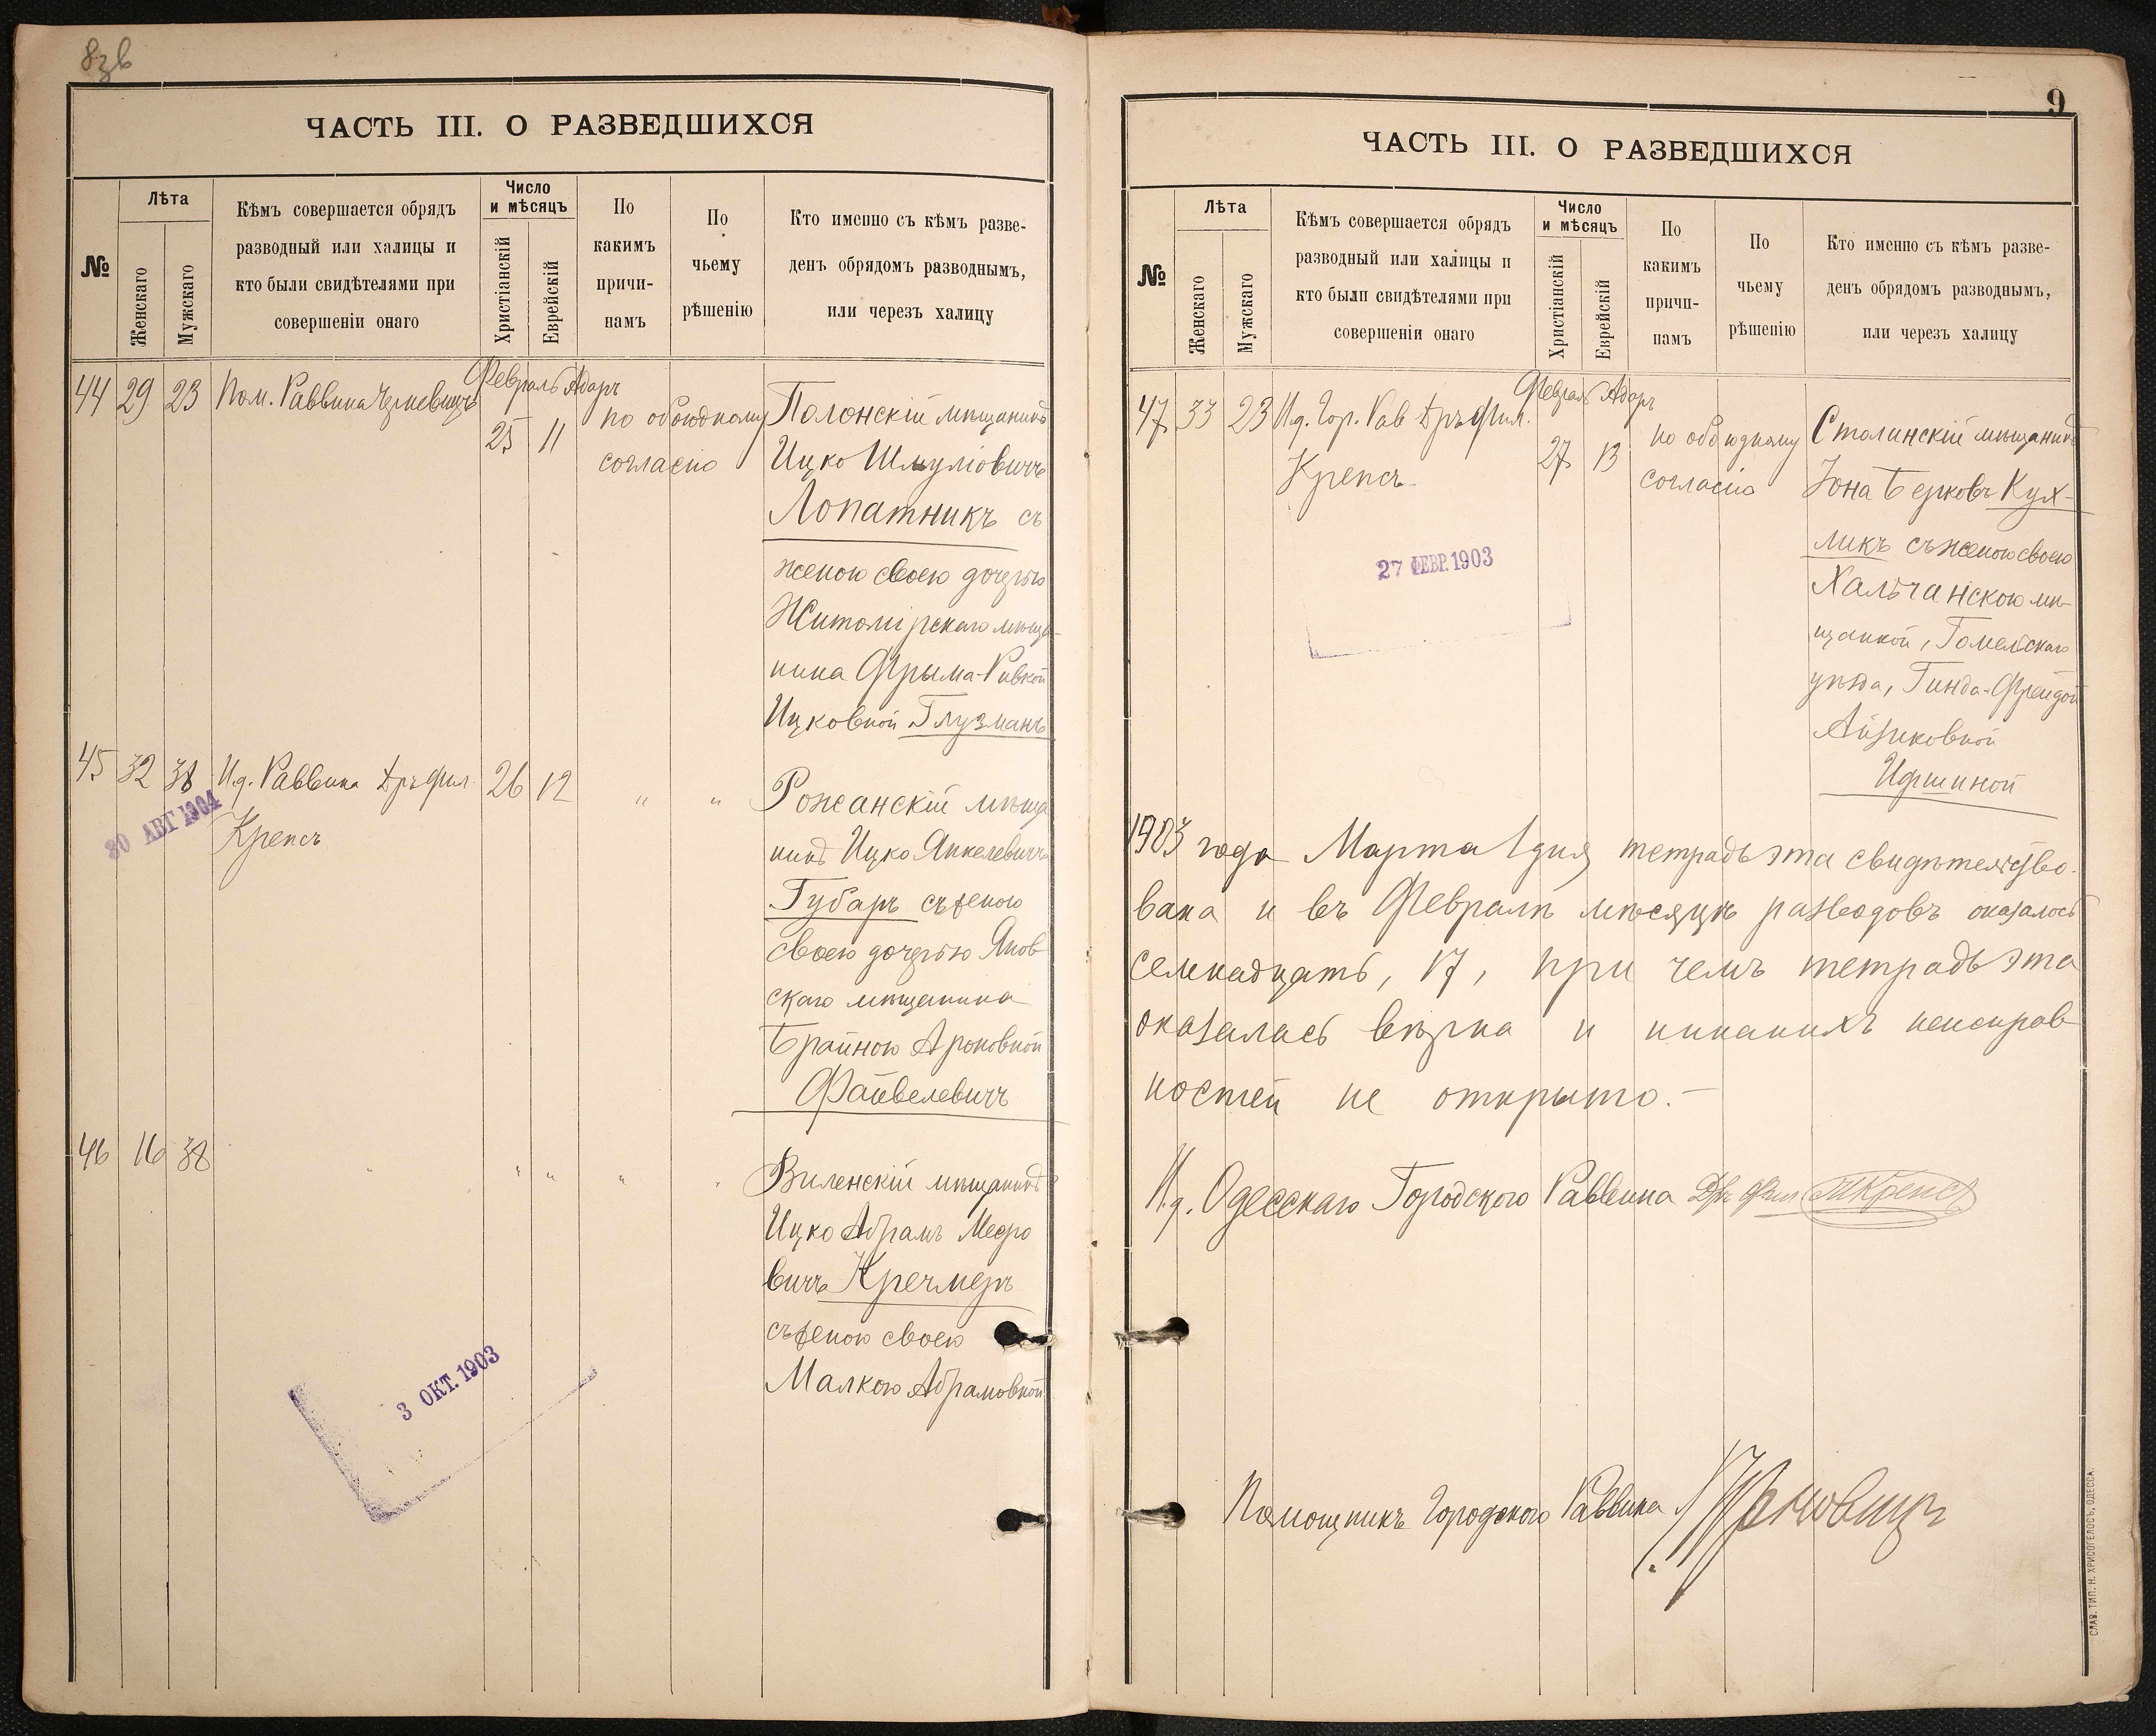 8зв
ЧАСТЬ III. О РАЗВЕДШИХСЯ
№
Лѣта
Женскаго
Мужскаго
Кѣмъ совершается обрядъ
разводный или халицы и
кто были свидѣтелями при
совершеніи онаго
Число
и мѣсяцъ
Христіанскій
Еврейскій
По
какимъ
причи-
намъ
По
чьему
рѣшенію
Кто именно съ кѣмъ разве-
денъ обрядомъ разводнымъ,
или черезъ халицу
44 29 23 Пом. Раввина
Февраль Адаръ
25 11
по обоюдному
согласію
Полонскій мѣщанинъ
Ицко Шмуліовичъ
Лопатникъ съ
женою своею дочерью
Житомірскаго мѣща-
нина Фрыма-Ривкой
Ицковной Глузманъ
45 32 38 И.д. Раввина Дръ фил.
Крепсъ
26 12 " "
30 АВГ 1904
Рожанскій мѣща
нинъ Ицко Янкелевичъ
Губаръ съ женою
своею дочерью Янов-
скаго мѣщанина
Брайною Ароновной
Файвелевичъ
46 16 38 " " " " "
Виленскій мѣщанинъ
Ицко Абрамъ Мееро
вичъ Кречмеръ
съ женою своею
Малкою Абрамовной
3 ОКТ. 1903
9
ЧАСТЬ III. О РАЗВЕДШИХСЯ
№
Лѣта
Женскаго
Мужскаго
Кѣмъ совершается обрядъ
разводный или халицы и
кто были свидѣтелями при
совершеніи онаго
Число
и мѣсяцъ
Христіанскій
Еврейскій
По
какимъ
причи-
намъ
По
чьему
рѣшенію
Кто именно съ кѣмъ разве-
денъ обрядомъ разводнымъ,
или черезъ халицу
47 33 23 И.д. Гор. Рав Дръ фил.
Крепсъ
Февраль Адаръ
27 13
по обоюдному
согласію
27 ФЕВР. 1903
Столинскій мѣщанинъ
Іона Берковъ Кух-
ликъ съ женою своею
Хальчанскою мѣ-
щанкой, Гомельскаго
уѣзда, Гинда-Фрейдой
Айзиковной
1903 года Марта 1 дня тетрадь эта свидѣтельство-
вана и въ Февралѣ мѣсяцѣ разводовъ оказалось
семнадцать, 17, при чемъ тетрадь эта
оказалась вѣрна и никакихъ неисправ-
ностей не открыто.—
И.д. Одесскаго Городского Раввина Дръ фил. МКрепсъ
Помощникъ Городского Раввина
СЛАВ. ТИП. Н. ХРИСОГЕЛОСЪ, ОДЕССА.